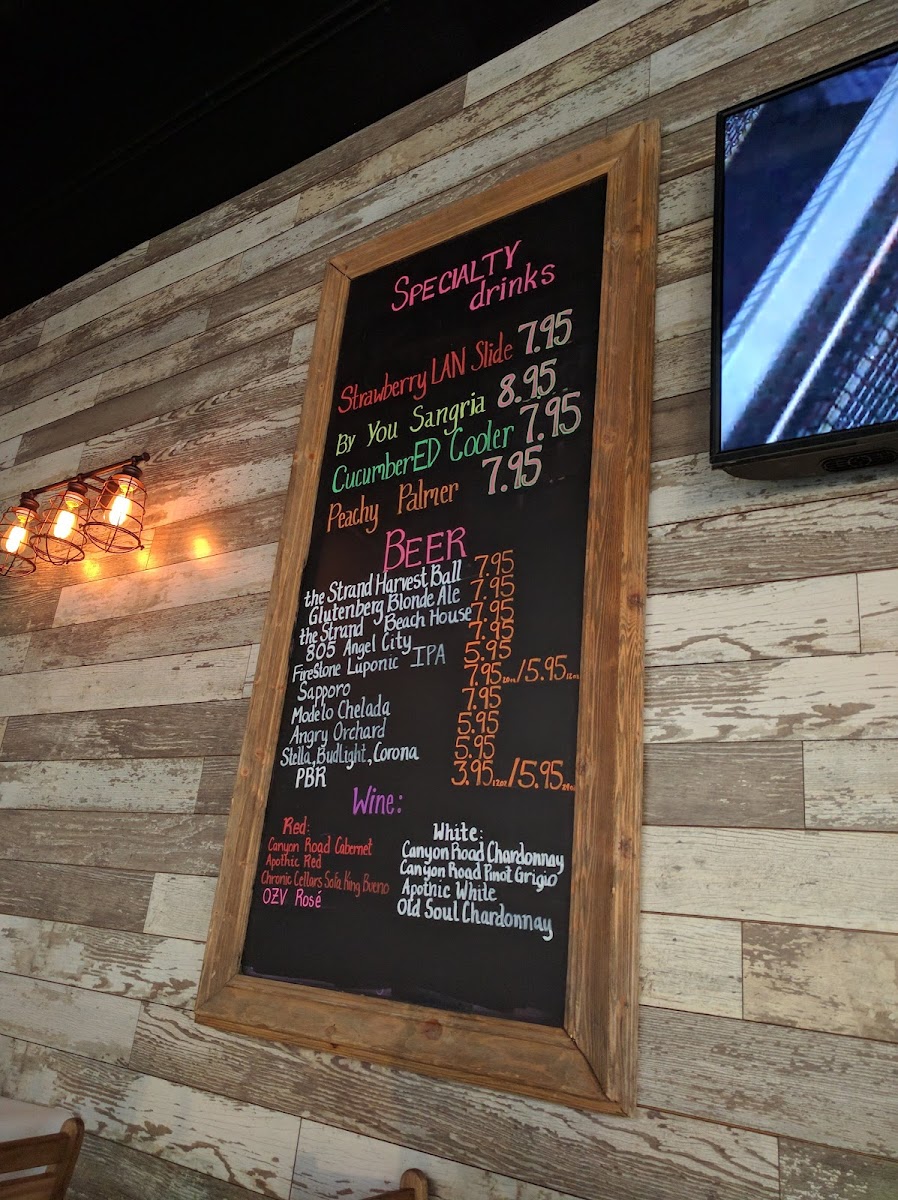 SPECIALTY
drinks
Strawberry LAN Slide 7.95
By You Sangria 8.95
CucumberED Cooler 7.95
Peachy Palmer 7.95
BEER
the Strand Harvest Ball 7.95
Glutenberg Blonde Ale 7.95
the Strand Beach House 7.95
805 Angel City 7.95
Firestone Luponic IPA 5.95
Sapporo 7.95 20oz/5.95 12oz
Modelo Chelada 7.95
Angry Orchard 5.95
Stella, BudLight, Corona 5.95
PBR 3.95 12oz/5.95 24oz
Wine:
Red:
Canyon Road Cabernet
Apothic Red
Chronic Cellars Sofa King Bueno
OZV Rosé
White:
Canyon Road Chardonnay
Canyon Road Pinot Grigio
Apothic White
Old Soul Chardonnay